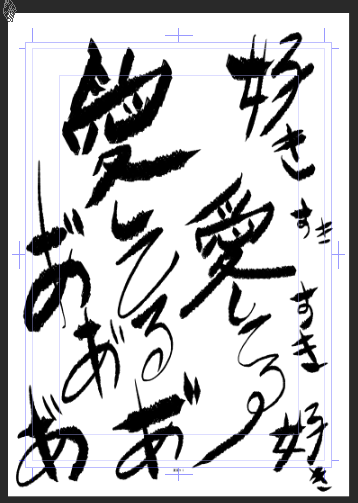 好き
すき
すき
好き
愛してる
愛してる
あ゛
あ゛
あ゛
あ゛